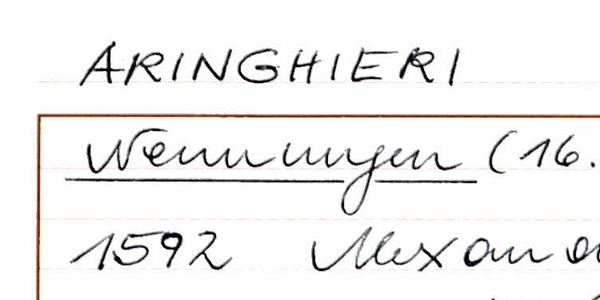 ARINGHIERI
Wenningen (16.
1592 Alexand